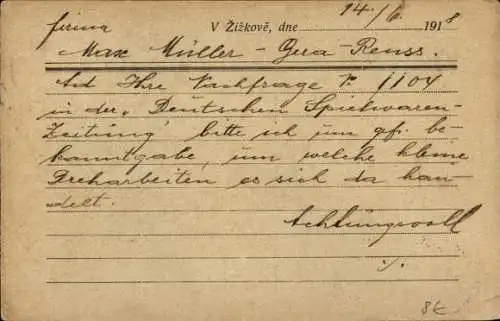 firma V Žižkově, dne 14./6. 1918
Max Müller - Gera - Reuss.
Ad Ihre Nachfrage № 1104
in der „Deutschen Spielwaren-
Zeitung" bitte ich um gfl. be-
kanntgabe, um welche kleine
Dreharbeiten es sich da han-
delt.
Achtungsvoll
./.
8€